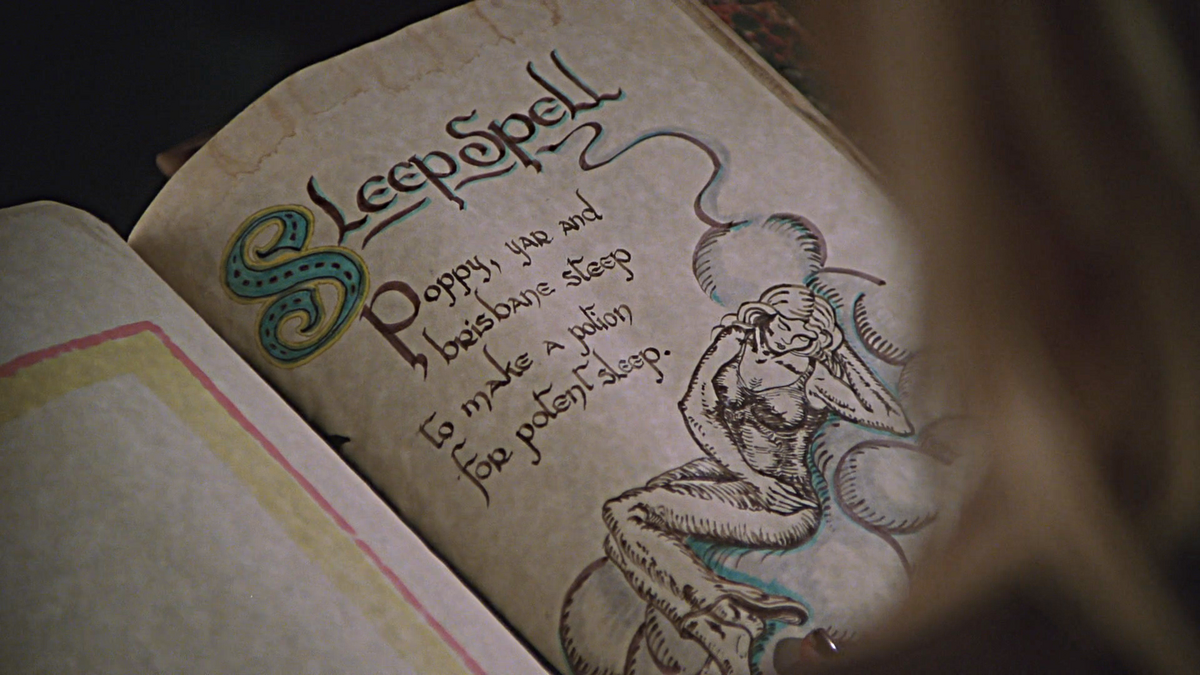 Sleep Spell
Poppy, yar and
brisbane steep
to make a potion
for potent sleep.